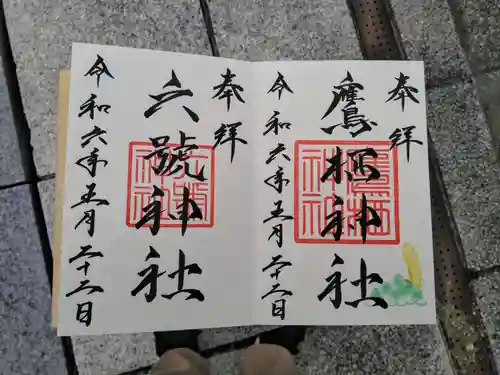 奉拝
鷹栖神社
令和六年五月二十二日
奉拝
六號神社
令和六年五月二十二日